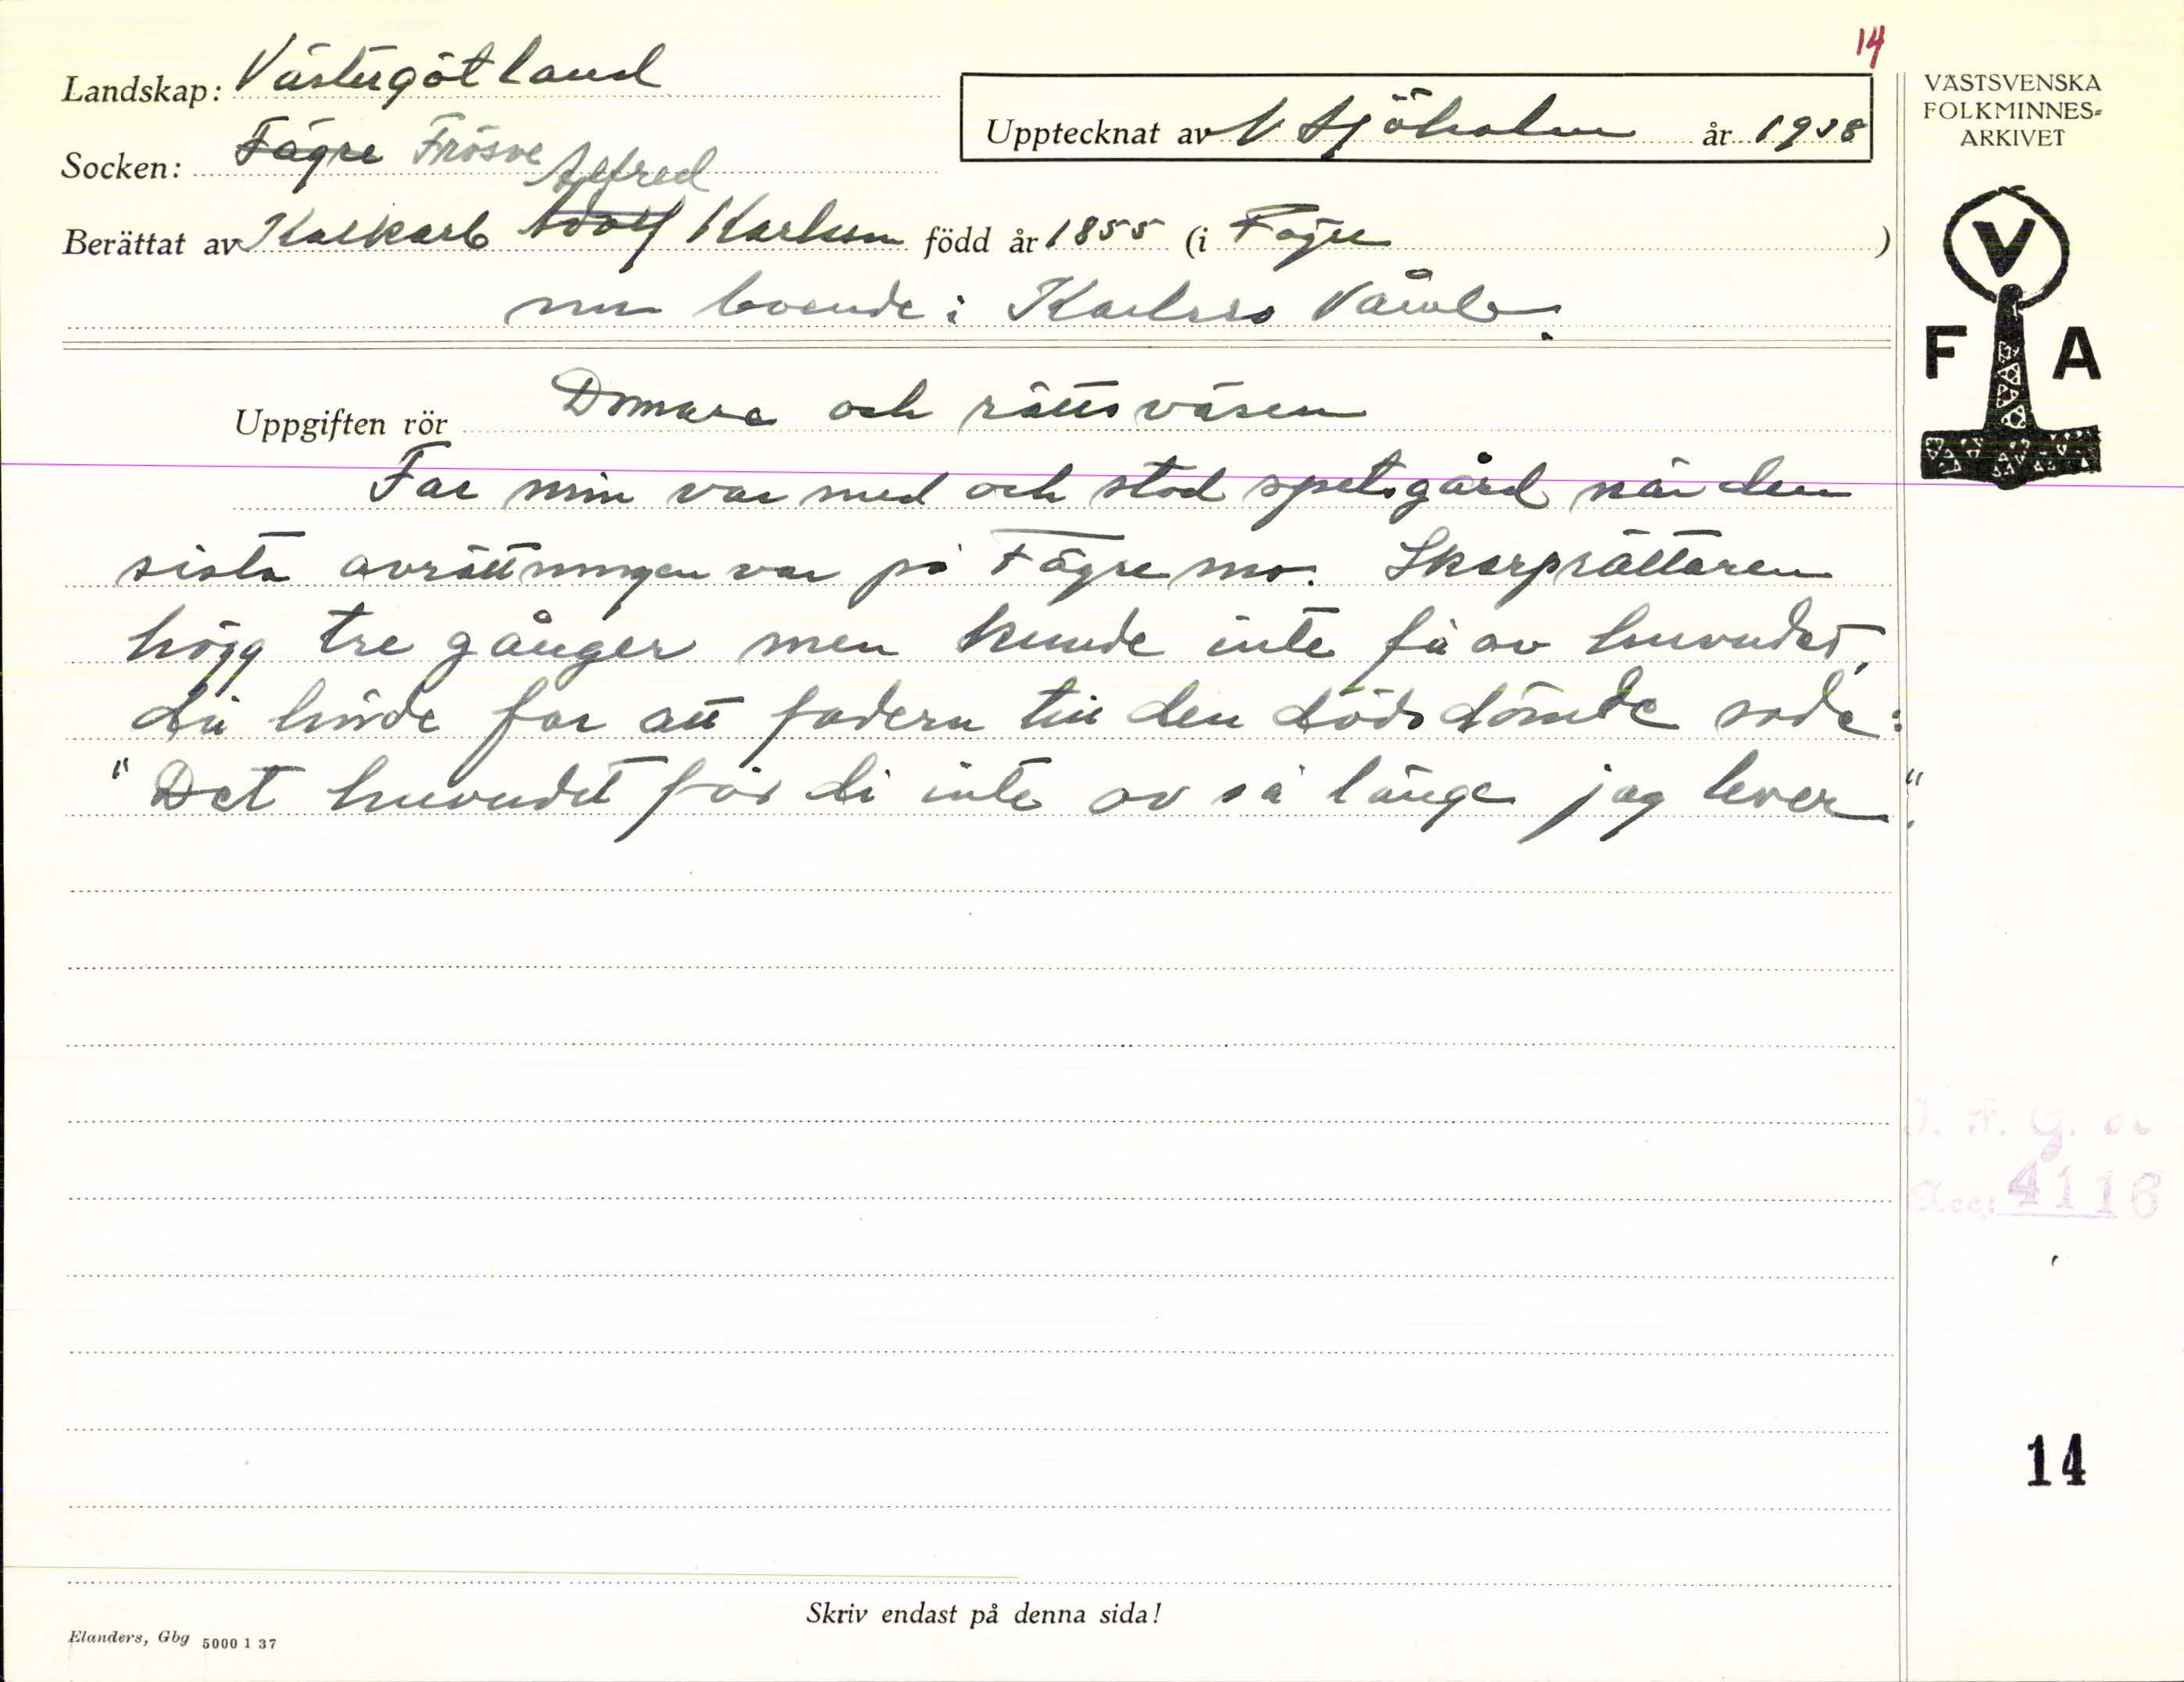 14
Landskap: Västergötland
VÄSTSVENSKA
FOLKMINNES=
ARKIVET
Upptecknat av V Sjöholm år 1938
Socken: Fägre Frösve
Alfred
Berättat av Adolf Karlsson född år 1855 (i Fägre )
nu boende i Karlsro Våmb.
V
F A
Uppgiften rör Domare och rättsväsen
Far min var med och stod spetsgård när den
sista avrättningen var på Fägre mo. Skarprättaren
högg tre gånger men kunde inte få av huvudet,
då hörde far att fadern till den dödsdömde sade:
"Det huvudet får di inte av så länge jag lever."
Acc: 4116
14
Skriv endast på denna sida!
Elanders, Gbg 5000 1 37